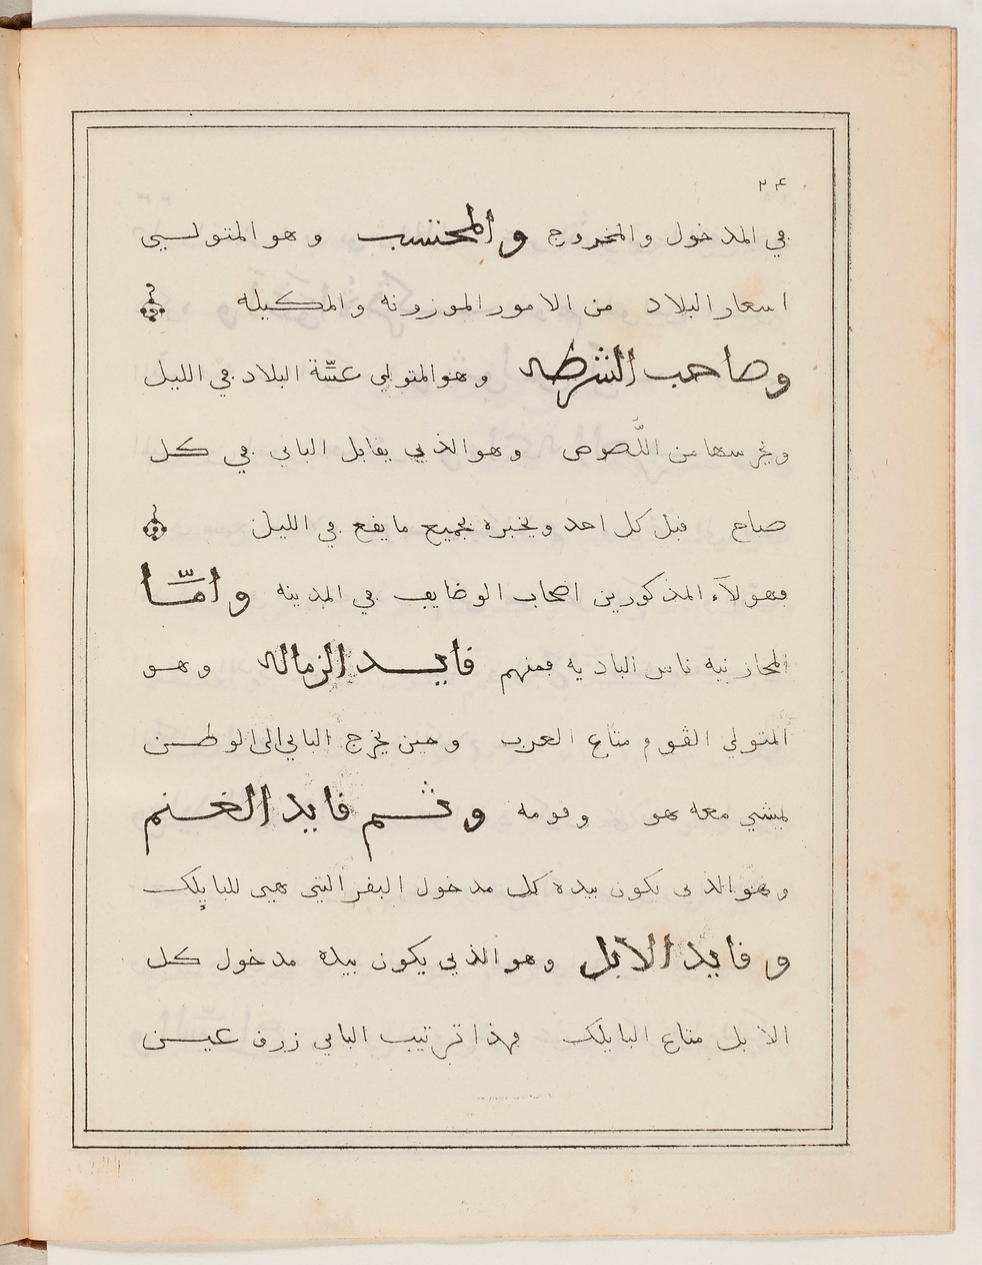 ٢٤
في المدخول والمخروج والمحتسب وهو المتولـيـي
اسعار البلاد من الامور الموزونه والمكيله
وصاحب الشرطه وهو المتولي عسّة البلاد في الليل
ويحرسها من اللّصوص وهو الذي يقابل الباي في كل
صباح قبل كل احد ويخبره بجميع ما يقع في الليل
فهولآء المذكورين اصحاب الوظايف في المدينه وامّـا
المخازنيه ناس الباديه فمنهم قايـد الزماله وهـو
المتولي القوم متاع العرب وحين يخرج الباي الى الوطـن
يمشي معه هو وقومه وثـم قايد الغـنم
وهو الذي يكون بيده كل مدخول البقر التي هي للبايلك
وقايد الابل وهو الذي يكون بيده مدخول كل
الابل متاع البايلك فهذا ترتيب الباي زرق عيـن